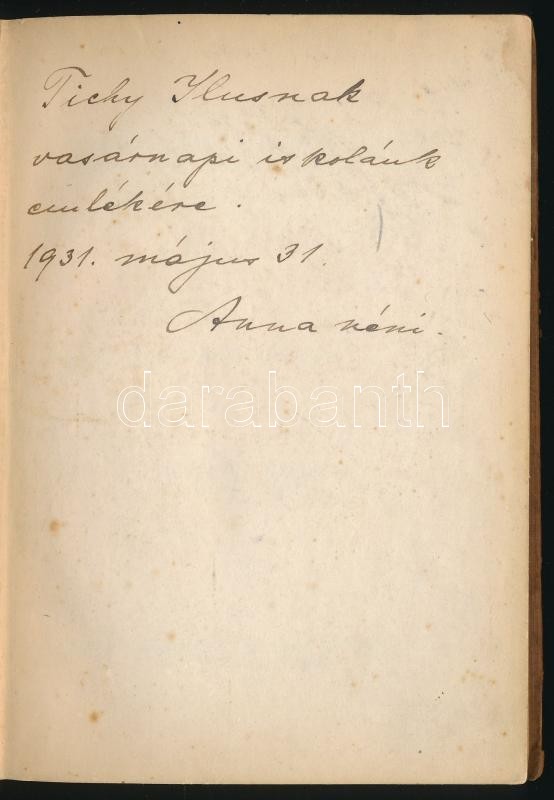 Tichy Ilusnak
vasárnapi iskolánk
emlékére.
1931. május 31.
Anna néni.
darabanth